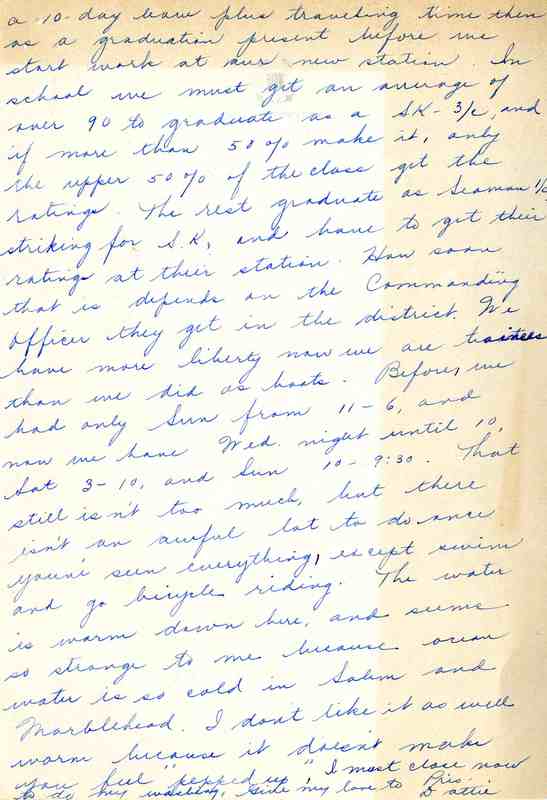 a 10-day leave plus traveling time then
as a graduation present before we
start work at our new station. In
school we must get an average of
over 90 to graduate as a SK-3/c, and
if more than 50% make it, only
the upper 50% of the class get the
ratings. The rest graduate as Seaman 1/c
striking for S.K., and have to get their
ratings at their station. How soon
that is depends on the Commanding
Officer they get in the district. We
have more liberty now we are trainees
than we did as boots. Before, we
had only Sun from 11-6, and
now we have Wed. night until 10,
Sat 3-10, and Sun 10-9:30. That
still isn't too much, but there
isn't an awful lot to do once
you've seen everything, except swim
and go bicycle riding. The water
is warm down here, and seems
so strange to me because ocean
water is so cold in Salem and
Marblehead. I don't like it as well
warm because it doesn't make
you feel "pepped up" I must close now
to do my washing, Give my love to Pris.
Dattie